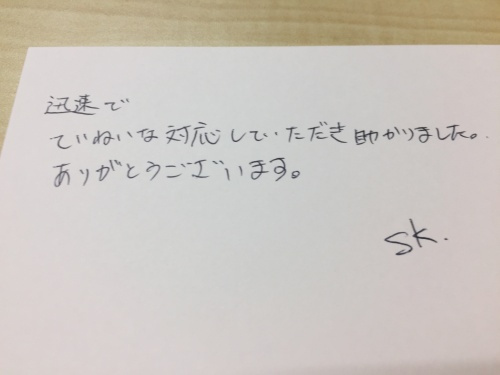 迅速で
ていねいな対応していただき助かりました。
ありがとうございます。
SK.